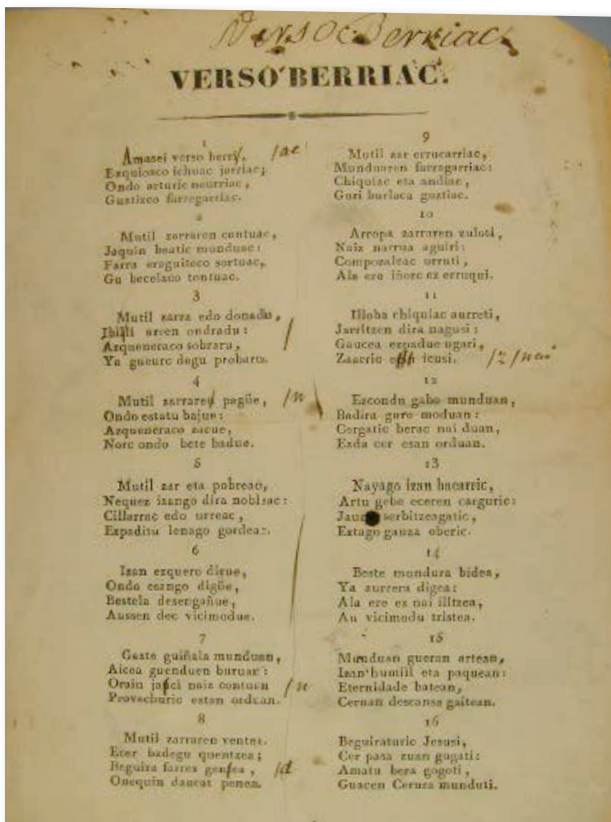 Verso Berriac
VERSO BERRIAC.
1
Amasei verso berri, /ac
Ezquiosco ichuac jarriac;
Ondo arturic neurriac,
Guztizco farregarriac.
2
Mutil zarraren contuac,
Jaquin beatic munduac:
Farra eraguiteco sortuac,
Gu becelaco tontuac.
3
Mutil zarra edo donadu,
Ibilli arren ondradu: /
Azqueneraco sobraru,
Ya gueure degu probatu.
4
Mutil zarrare pagüe, /n
Ondo estatu bajue:
Azqueneraco zacue,
Norc ondo bete badue.
5
Mutil zar eta pobreac,
Nequez izango dira nobleac:
Cillarrac edo urreac,
Ezpaditu lenago gordeac.
6
Izan ezquero dirue,
Ondo esango digüe,
Bestela desengañue,
Aussen dec vicimodue.
7
Gazte guiñala munduan,
Aicea guenduen buruan:
Orain jaci naiz contuan /n
Provechuric estan orduan.
8
Mutil zarraren ventec.
Ecer badegu quentzea;
Beguira farrea genea, /d
Onequin daucat penea.
9
Mutil zar errucarriac,
Munduaren farragarriac:
Chiquiac eta andiac,
Guri burlaca guztiac.
10
Arropa zarraren zuloti,
Naiz narrua aguiri:
Compozaleac urruti,
Ala ere iñorc ez erruqui.
11
Illoba chiquiac aurreti,
Jarritzen dira nagusi:
Gaucea ezpadue ugari,
Zaarric icusi. /z /nai
12
Escondu gabe munduan,
Badira gure moduan:
Cergatic berac nai duan,
Ezda cer esan orduan.
13
Nayago izan bacarric,
Artu gebe eceren carguric:
serbitzeagatic,
Eztago gauza oberic.
14
Beste mundura bidea,
Ya aurrera digea:
Ala ere ez nai illtzea,
Au vicimodu tristea.
15
Munduan gueran artean,
Izan humill eta paquean:
Eternidade batean,
Ceruan descansa gaitean.
16
Beguiraturic Jesusi,
Cer pasa zuan gugati:
Amatu bera gogoti,
Guacen Cerura munduti.